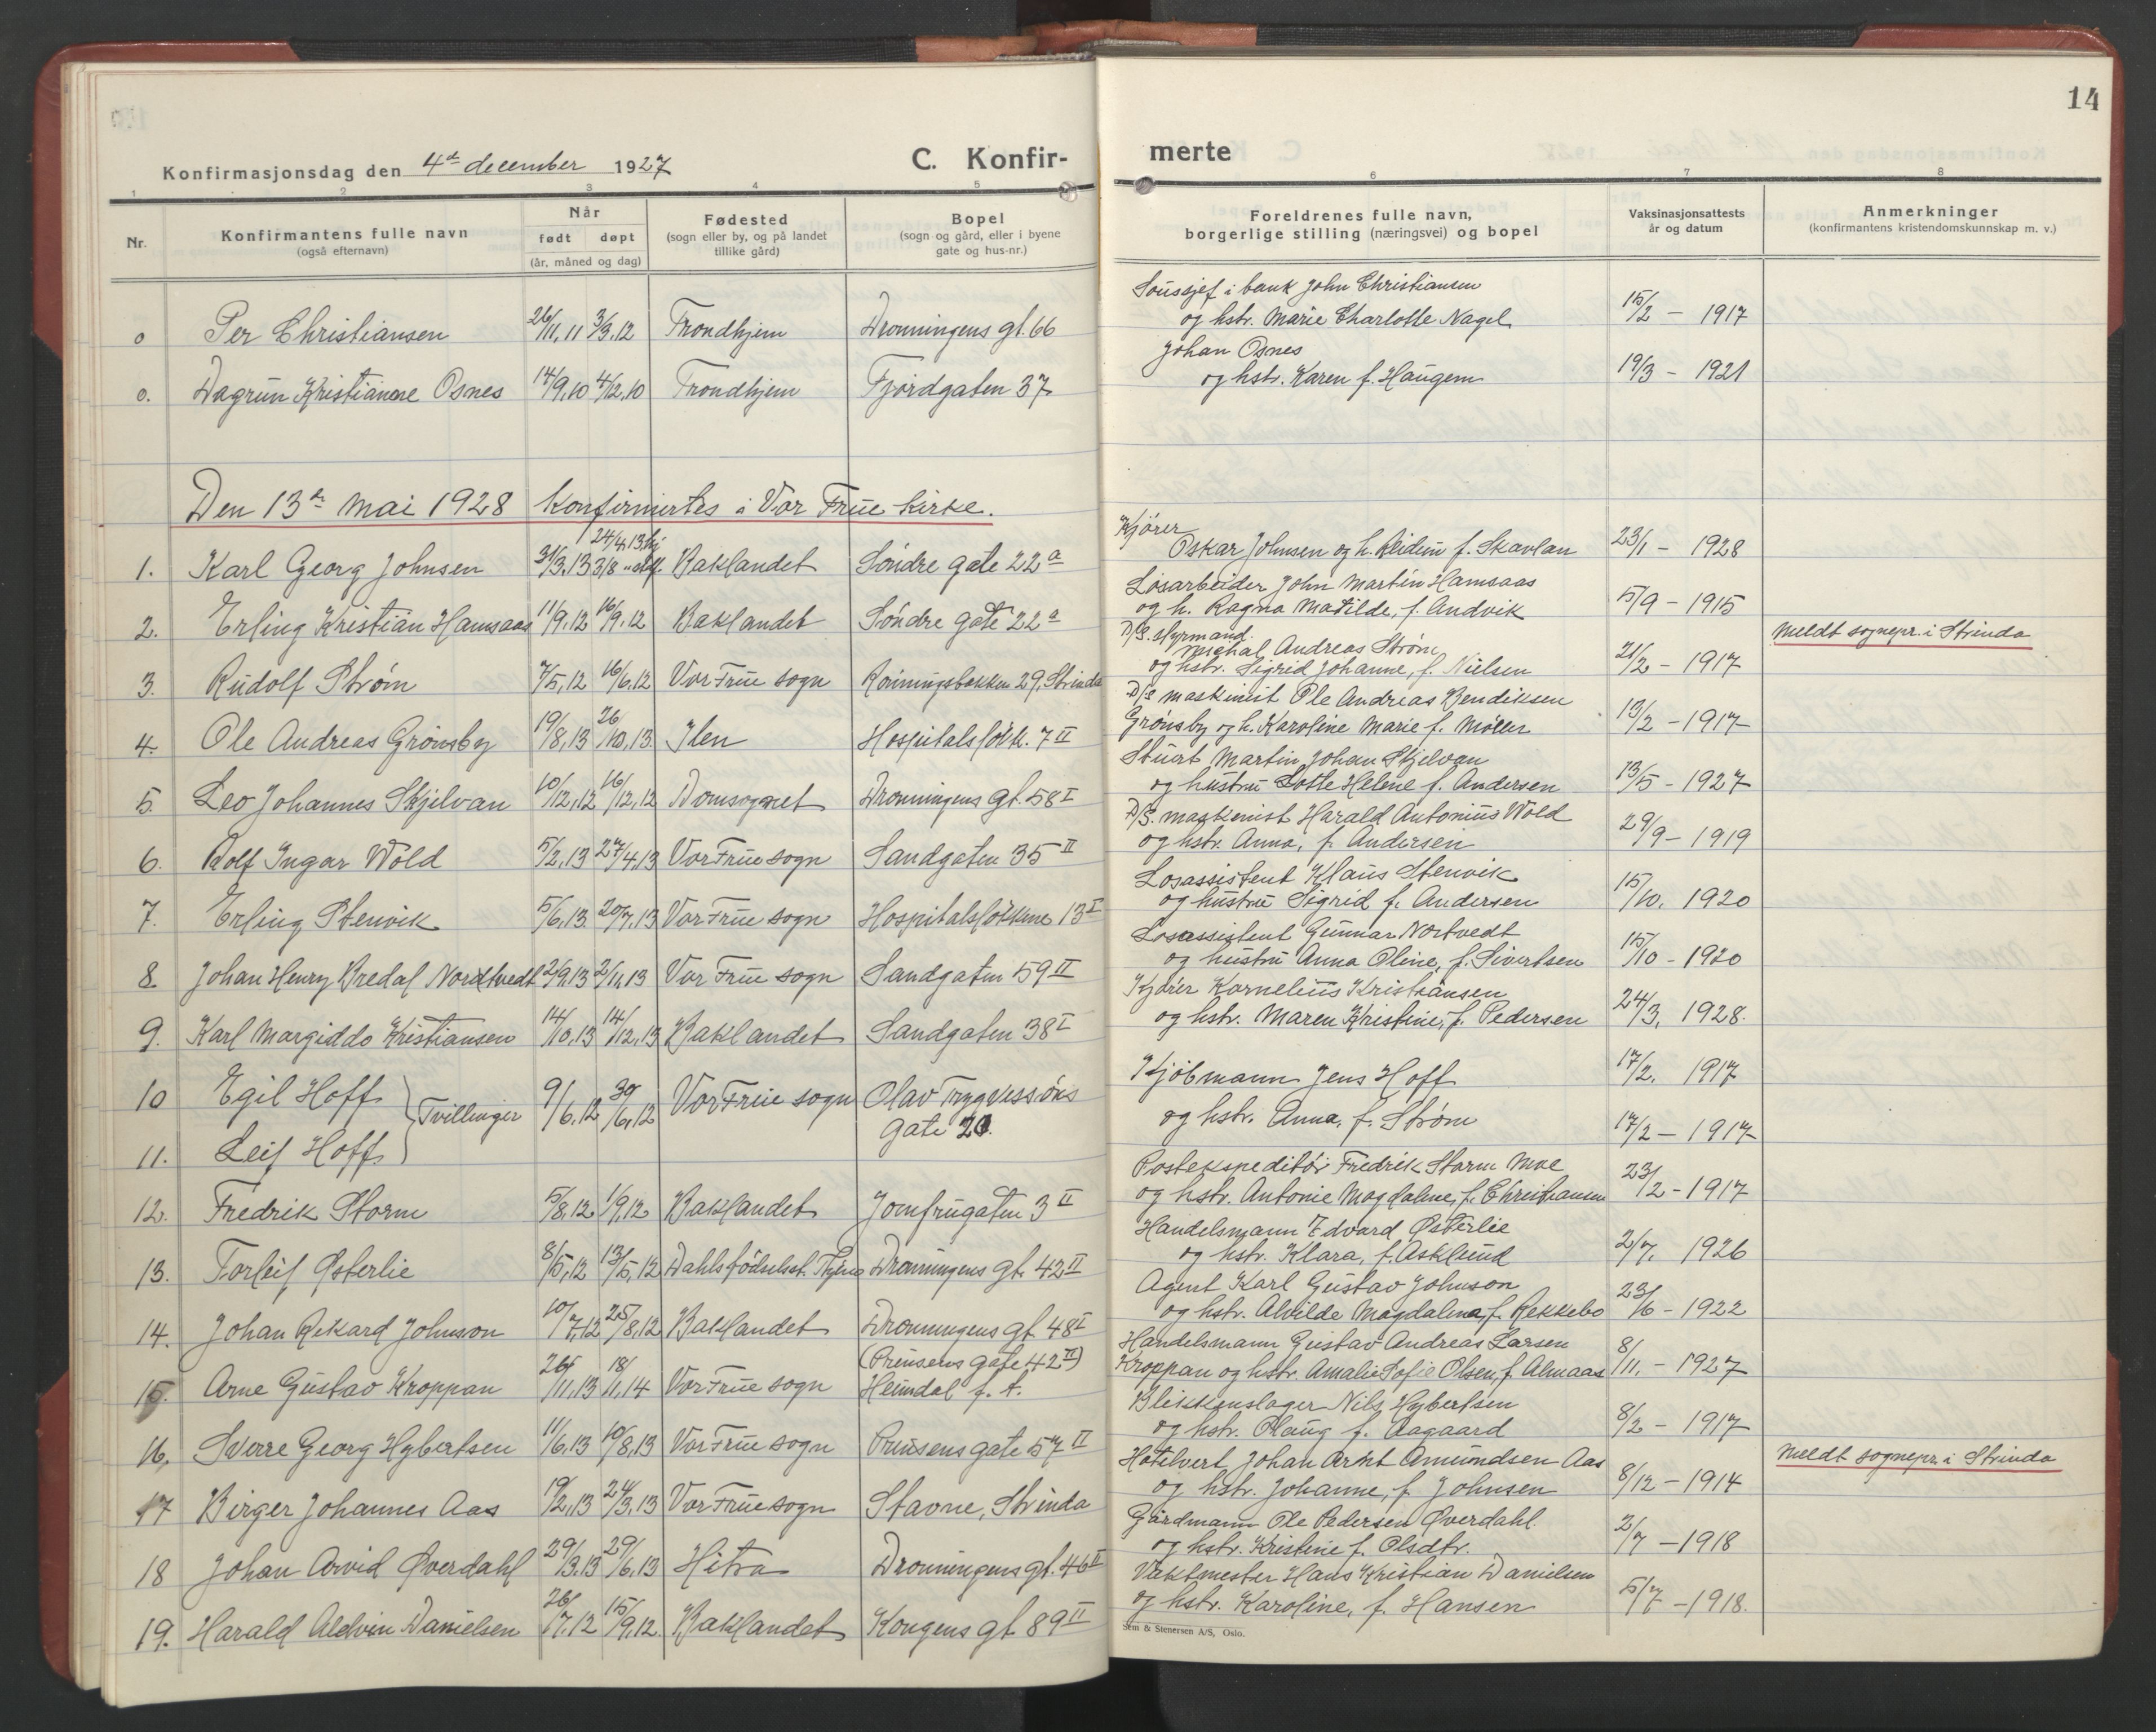 14
Konfirmasjonsdag den 4de december 1927
C. Konfir-
merte
1 2 3 4 5 6 7 8
Nr.
Konfirmantens fulle navn
(også efternavn)
Når
født døpt
(år, måned og dag)
Fødested
(sogn eller by, og på landet
tillike gård)
Bopel
(sogn og gård, eller i byene
gate og hus-nr.)
Foreldrenes fulle navn,
borgerlige stilling (næringsvei) og bopel
Vaksinasjonsattests
år og datum
Anmerkninger
(konfirmantens kristendomskunnskap m. v.)
o Per Christiansen 26/11,11 3/3,12 Trondhjem Dronningens gt. 66
Soussjef i bank John Christiansen
og hstr. Marie Charlotte Nagel 15/2 - 1917
o. Dagrun Kristianne Osnes 14/9,10 4/12,10 Trondhjem Fjordgaten 37
Johan Osnes
og hstr. Karen f. Haugem 19/3 - 1921
Den 13de mai 1928 konfirmertes i Vor Frue kirke.
1. Karl Georg Johnsen 31/3,13 24/4,13 hj. 3/8 Baklandet Søndre gate 22a
Kjører
Oskar Johnsen og h. Reidun f. Skavlan 23/1 - 1928
2. Erling Kristian Hamsaas 11/9,12 16/9,12 Baklandet Søndre gate 22a
Løsarbeider John Martin Hamsaas
og h. Ragna Matilde, f. Andvik 5/9 - 1915
3. Rudolf Strøm 7/5,12 16/6,12 Vor Frue sogn Rønningsbakken 29, Strinda
D/S. styrmand
Michal Andreas Strøm
og hstr. Sigrid Johanne, f. Nielsen 21/2 - 1917
meldt sognepr. i Strinda
4. Ole Andreas Grønsby 19/8,13 26/10,13 Ilen Hospitalsløkk. 7 II
D/S maskinist Ole Andreas Bendiksen
Grønsby og h. Karoline Marie f. Møller 13/2 - 1917
5 Leo Johannes Skjelvan 10/12,12 16/12,12 Domsognet Dronningens gt. 58 I
Stuert Martin Johan Skjelvan
og hustru Lotte Helene f. Andersen 13/5 - 1927
6. Rolf Ingar Wold 5/2,13 27/4,13 Vor Frue sogn Sandgaten 35 II
D/S. maskinist Harald Antonius Wold
og hstr. Anna, f. Andersen 29/9 - 1919
7. Erling Stenvik 5/6,13 20/7,13 Vor Frue sogn Hospitalsløkkene 13 I
Losassistent Klaus Stenvik
og hustru Sigrid f. Andersen 15/10. 1920
8. Johan Henry Bredal Nordtvedt 2/9,13 2/11,13 Vor Frue sogn Sandgaten 59 II
Losassistent Gunnar Nortvedt
og hustru Anna Oline, f. Sivertsen 15/10 - 1920
9. Karl Margiddo Kristiansen 14/10,13 14/12,13 Baklandet Sandgaten 38 I
Kjører Kornelius Kristiansen
og hstr. Maren Kristine, f. Pedersen 24/3, 1928.
10 Egil Hoff
11. Leif Hoff
Tvillinger 9/6,12 30/6,12 Vor Frue sogn Olav Trygvessøns
gate 20.
Kjøbmann Jens Hoff 17/2. 1917
og hstr. Anna, f. Strøm 17/2 - 1917
12. Fredrik Storm 5/8,12 1/9,12 Baklandet Jomfrugaten 3 II
Postekspeditør Fredrik Storm Moe
og hstr. Antonie Magdalene, f. Christiansen 23/2 - 1917
13. Torleif Østerlie 8/5,12 13/5,12 Dahls fødselsst. Thjem Dronningens gt. 42 II
Handelsmann Edvard Østerlie
og hstr. Klara, f. Asklund 2/7, 1926
14. Johan Rikard Johnson 10/7,12 25/8,12 Baklandet Dronningens gt. 48 I
Agent Karl Gustav Johnson
og hstr. Alvilde Magdalena f. Rekkebo 23/6 - 1922
15. Arne Gustav Kroppan 26/11,13 18/1,14 Vor Frue sogn (Prinsens gate 42 II)
Heimdal f. t.
Handelsmann Gustav Andreas Larsen
Kroppan og hstr. Amalie Sofie Olsen, f. Almaas 8/11. - 1927
16, Sverre Georg Hybertsen 11/6,13 10/8,13 Vor Frue sogn Prinsens gate 57 II
Blikkenslager Nils Hybertsen
og hstr. Olaug f. Aagaard 8/2 - 1917
17 Birger Johannes Aas 19/2,13 24/3,13 Vor Frue sogn Stavne, Strinda
Hotelvert Johan Arnt Amundsen Aas
og hstr. Johanne, f. Johnsen 8/12 - 1914
meldt sognepr. i Strinda
18 Johan Arvid Øverdahl 29/3.13 29/6,13 Hitra Dronningens gt. 46 II
Gårdmann Ole Pedersen Øverdahl.
og hstr. Kristine f. Olsdtr. 2/7 - 1918
19. Harald Aldvin Danielsen 26/7.12 15/9,12. Baklandet Kongens gt. 89 II
Vaktmester Hans Kristian Danielsen
og hstr. Karoline, f. Hansen 5/7 - 1918.
Sem & Stenersen A/S, Oslo.